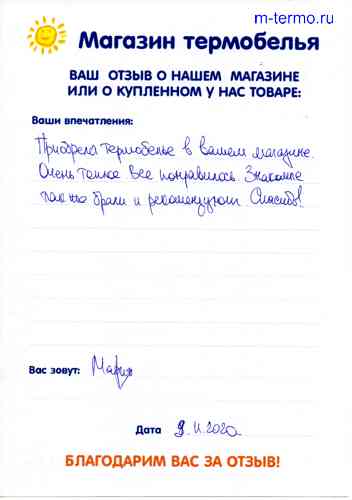 m-termo.ru
Магазин термобелья
ВАШ ОТЗЫВ О НАШЕМ МАГАЗИНЕ
ИЛИ О КУПЛЕННОМ У НАС ТОВАРЕ:
Ваши впечатления:
Приобрела термобелье в вашем магазине.
Очень теплое все понравилось. Знакомые
так же брали и рекомендуют. Спасибо!
Вас зовут: Мария
Дата 9.11.2020
БЛАГОДАРИМ ВАС ЗА ОТЗЫВ!